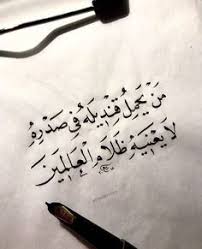 مَنْ يَحْمِلُ قِنْدِيلَهُ فِي صَدْرِهِ
لَا يَعْنِيهِ ظَلَامُ العَالَمِيْنَ